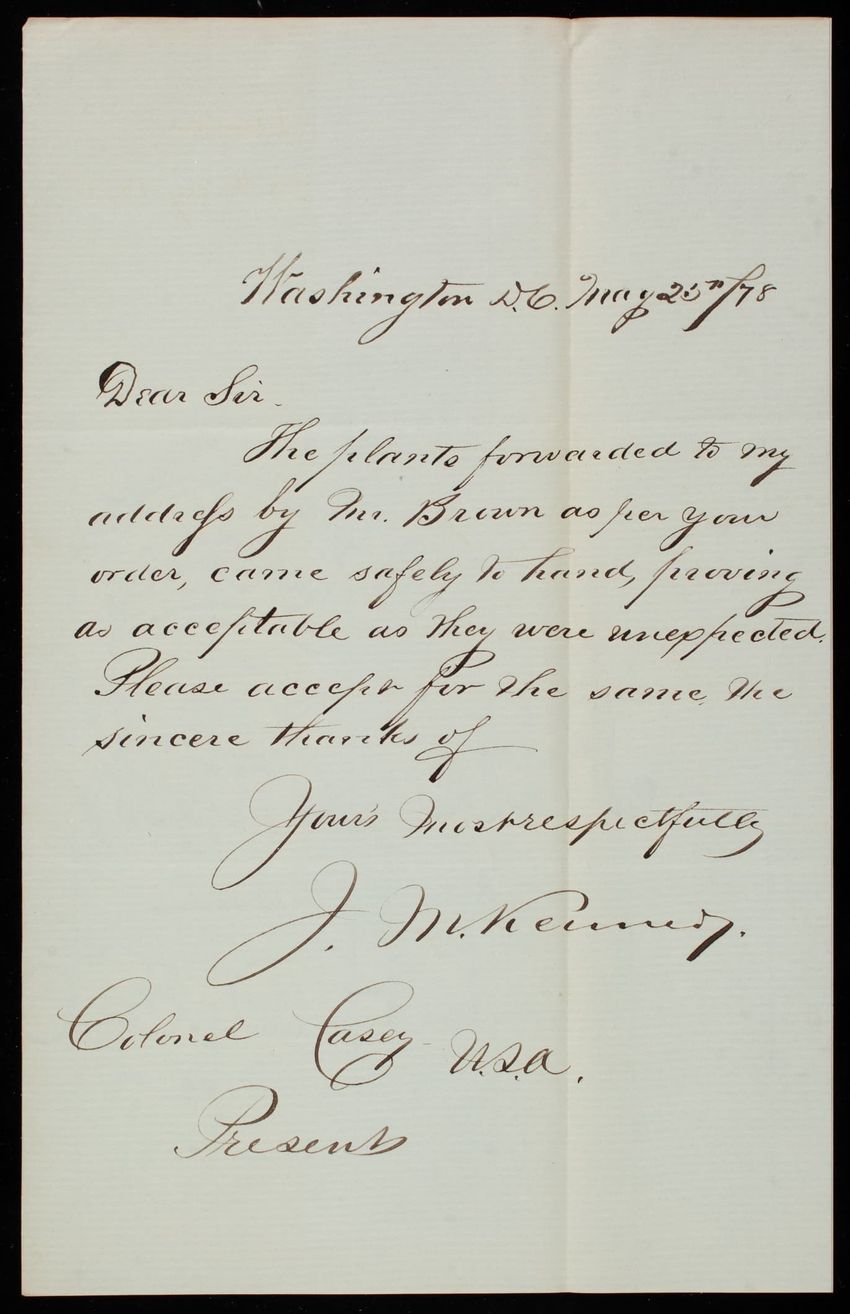 Washington D.C. May 25th/78
Dear Sir.
The plants forwarded to my
address by Mr. Brown as per your
order, came safely to hand, proving
as acceptable as they were unexpected.
Please accept for the same, the
sincere thanks of
Your's most respectfully
J. M. Kennedy.
Colonel Casey U.S.A.
Present